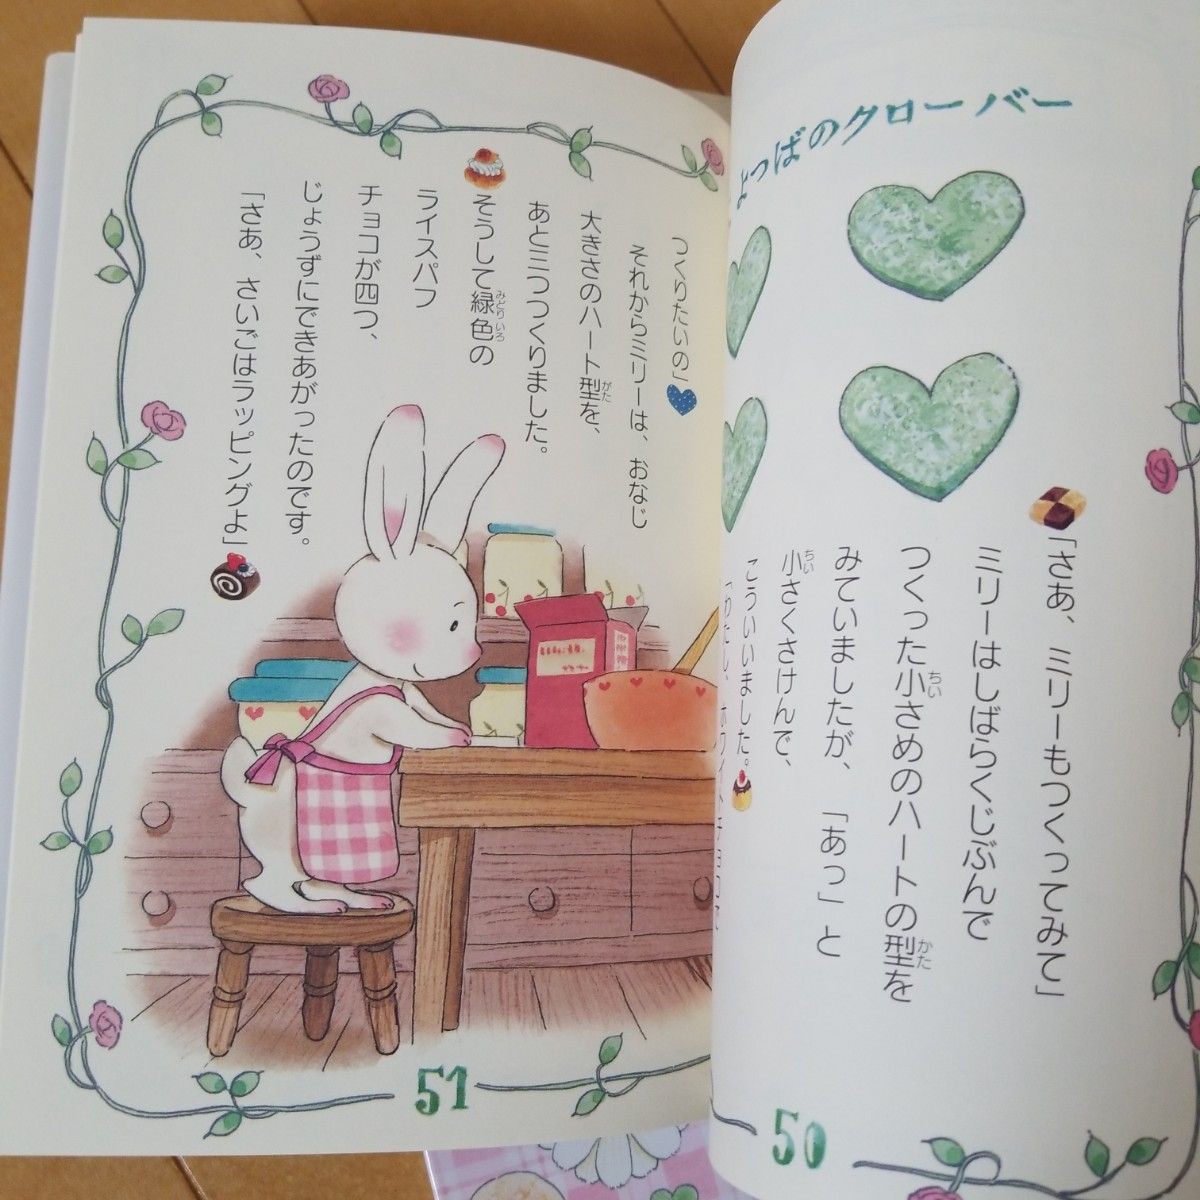 よつばのクローバー
「さあ、ミリーもつくってみて」
ミリーはしばらくじぶんで
つくった小さめのハートの型を
みていましたが、「あっ」と
小さくさけんで、
こういいました。
「わたし、ホワイトチョコで
50
つくりたいの」
それからミリーは、おなじ
大きさのハート型を、
あと三つつくりました。
そうして緑色の
ライスパフ
チョコが四つ、
じょうずにできあがったのです。
「さあ、さいごはラッピングよ」
51